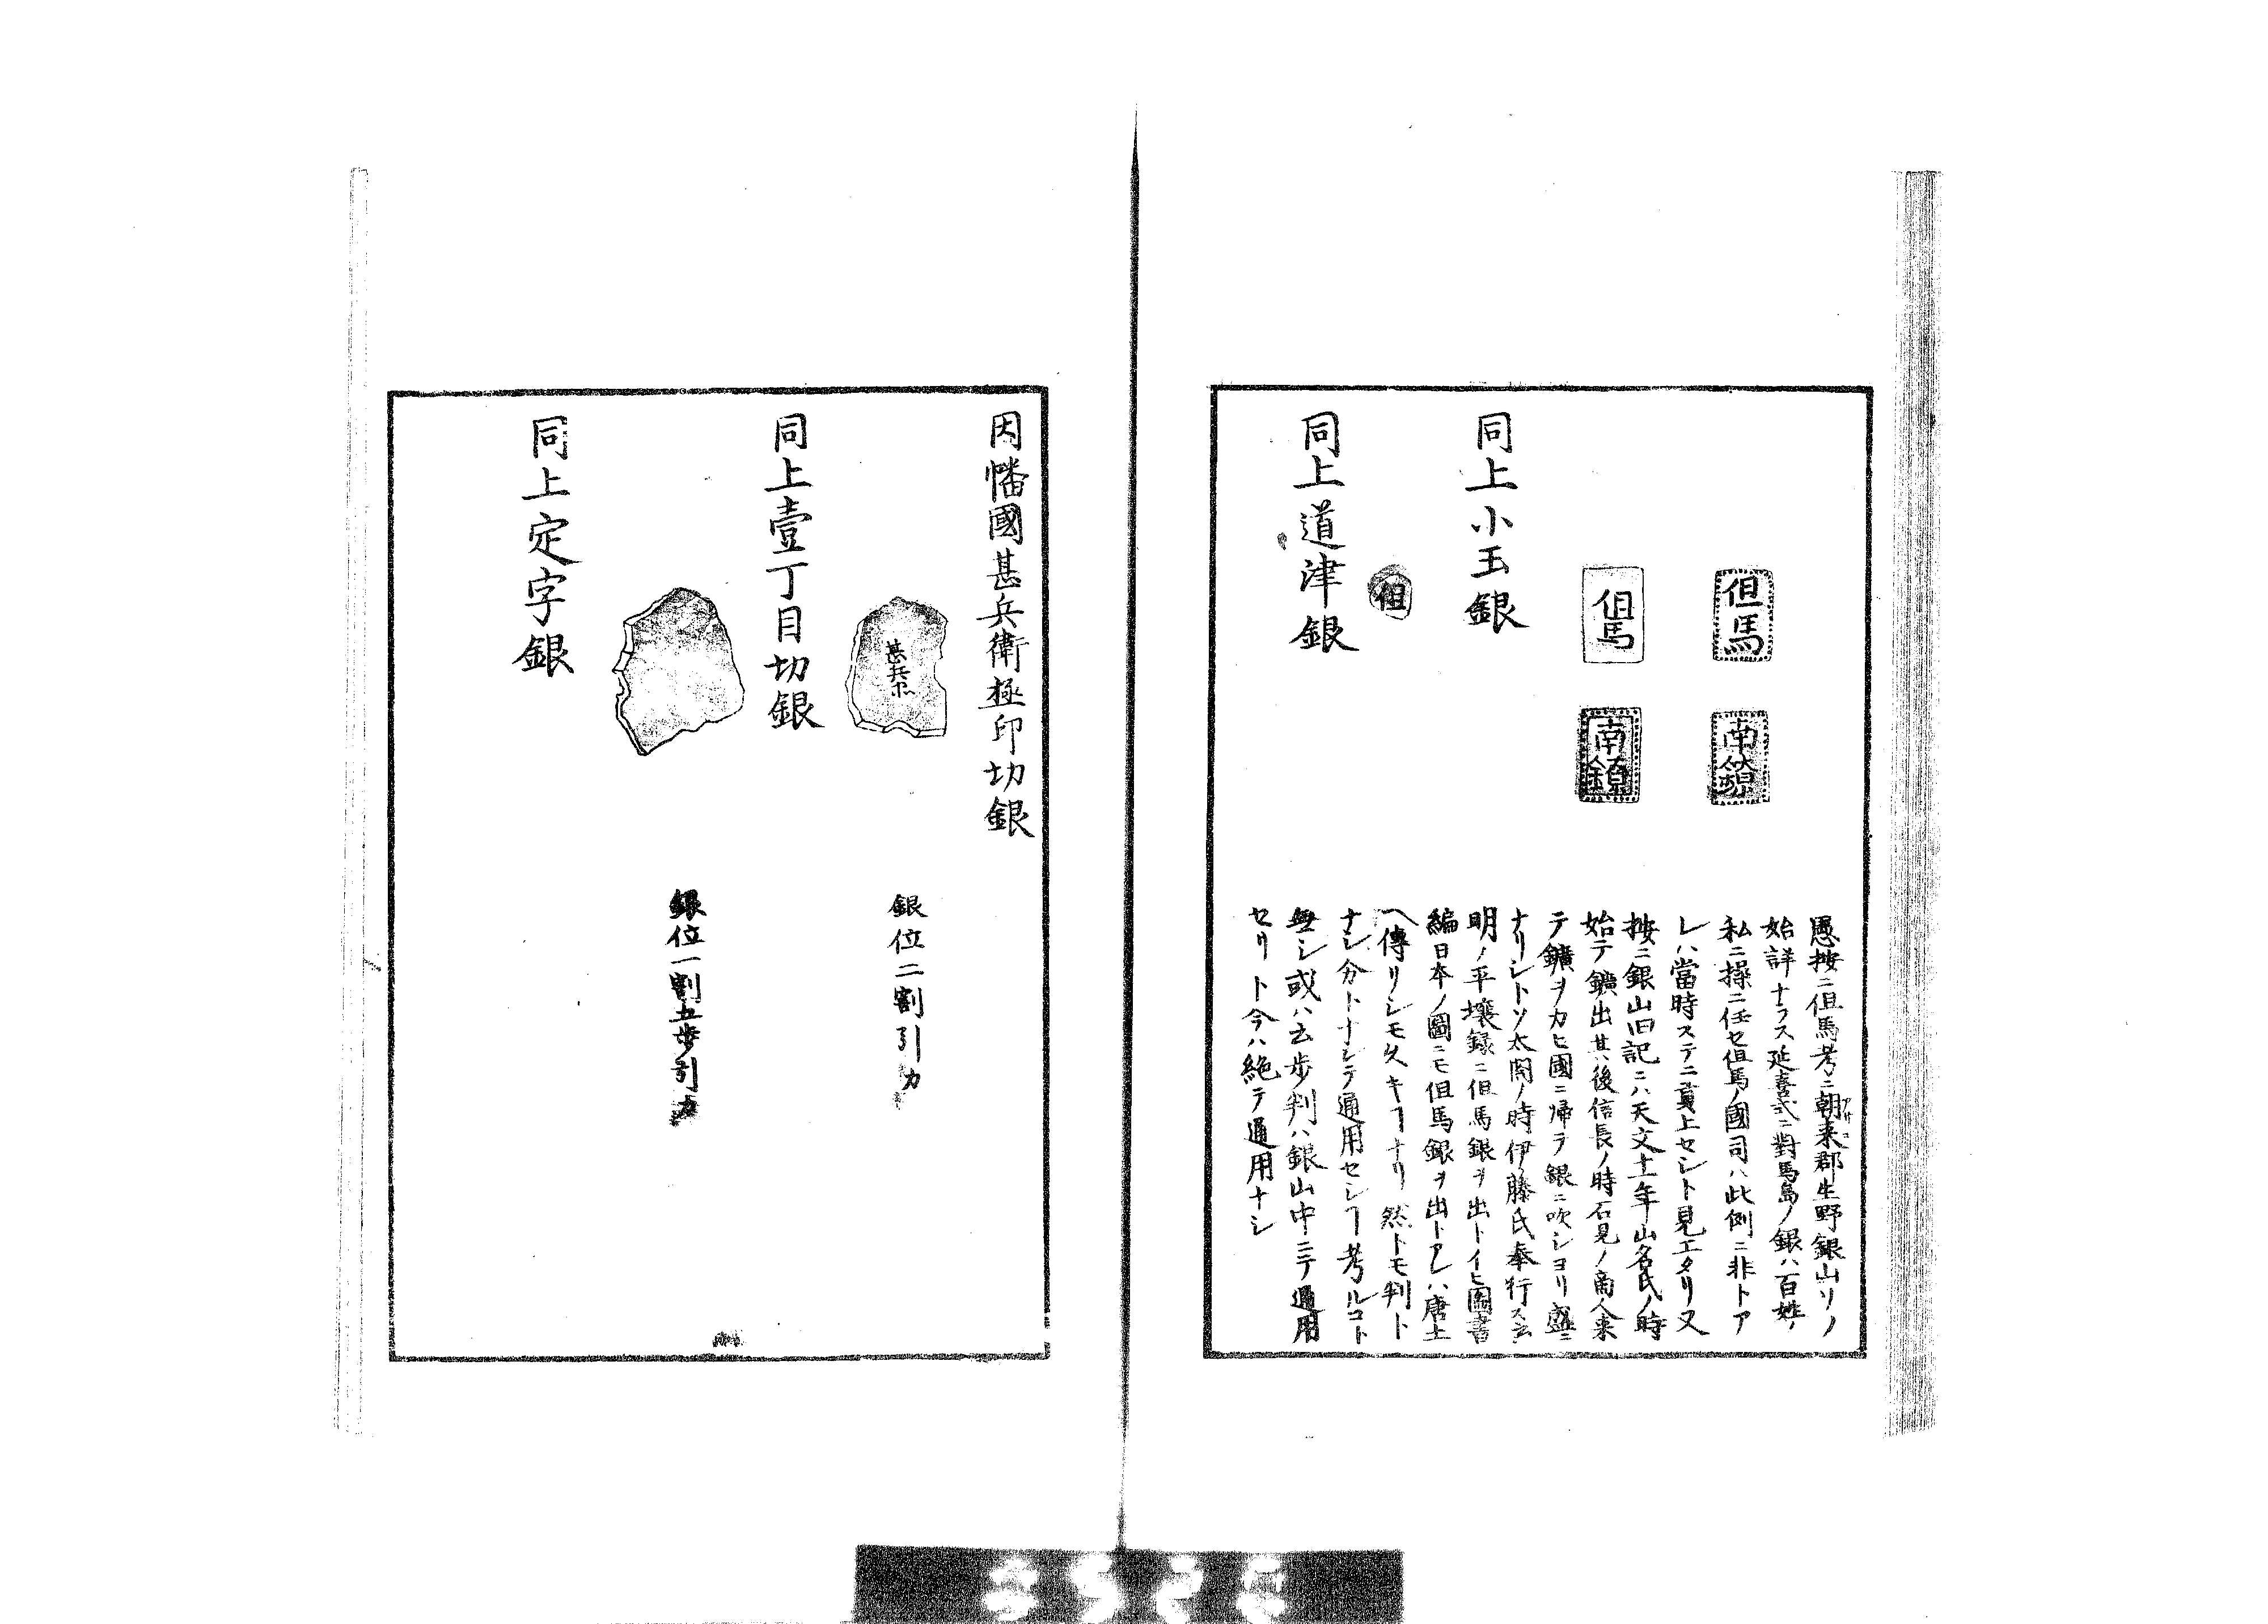 但馬
南鐐
但馬
南鐐
愚按ニ但馬考ニ朝来郡生野銀山ソノ
始詳ナラス延喜式ニ對馬島ノ銀ハ百姓ノ
私ニ操ニ任セ但馬ノ國司ハ此例ニ非トア
レハ當時ステニ貢上セシト見エタリ又
按ニ銀山旧記ニハ天文十一年山名氏ノ時
始テ鑛出其後信長ノ時石見ノ商人来
テ鑛ヲカヒ國ニ帰テ銀ニ吹シヨリ盛ニ
ナリシトソ太閤ノ時伊藤氏奉行ス云
明ノ平壌録ニ但馬銀ヲ出トイヒ圖書
編日本ノ圖ニモ但馬銀ヲ出トアレハ唐土
ヘ傳リシモ久キヿナリ然トモ判ト
ナシ分トナシテ通用セシヿ考ルコト
無シ或ハ云歩判ハ銀山中ニテ通用
セリト今ハ絶テ通用ナシ
同上小玉銀
但
同上道津銀
因幡國甚兵衛極印切銀
甚兵衛
銀位二割引カ
同上壹丁目切銀
銀位一割五歩引カ
同上定字銀